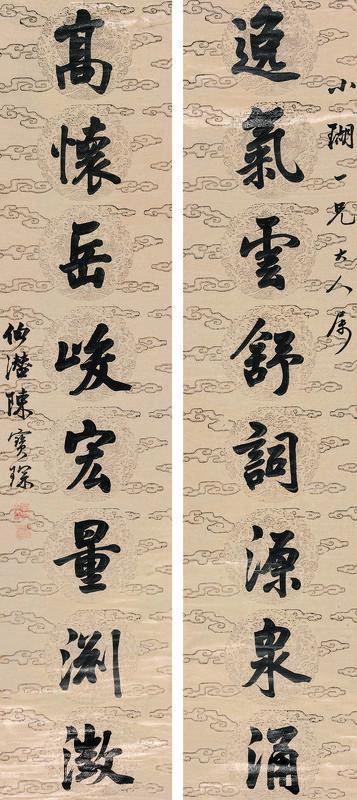 小瑚一兄大人属
逸氣雲舒詞源泉涌
高懷岳峻宏量淵澂
伯潛陳寶琛